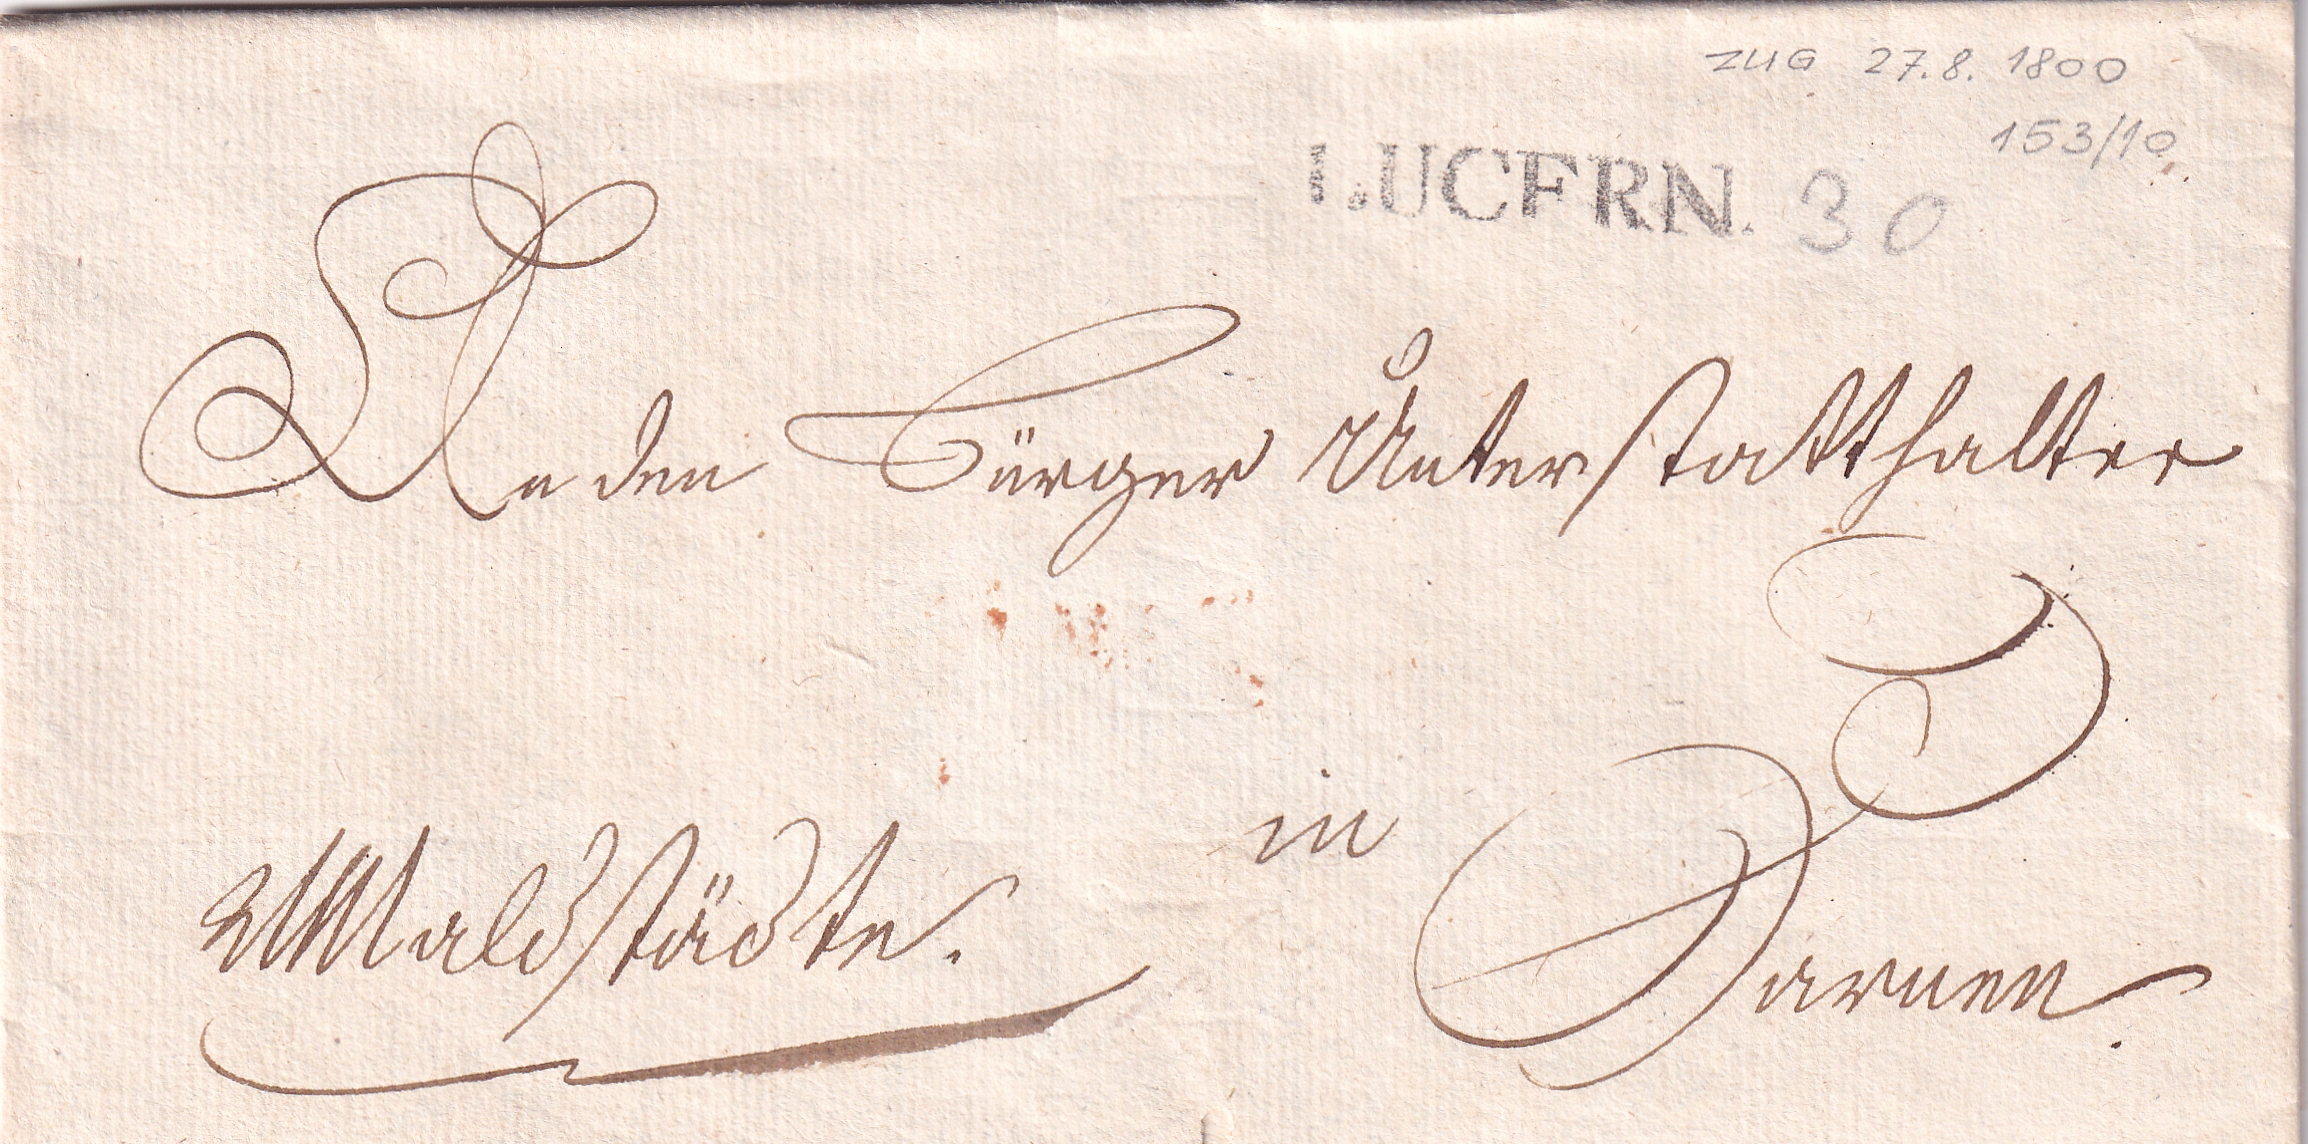 ZUG 27.8.1800
153/10
LUCERN. 30
An den Bürger Unterstatthalter
in
Waldstädte. Sarnen.